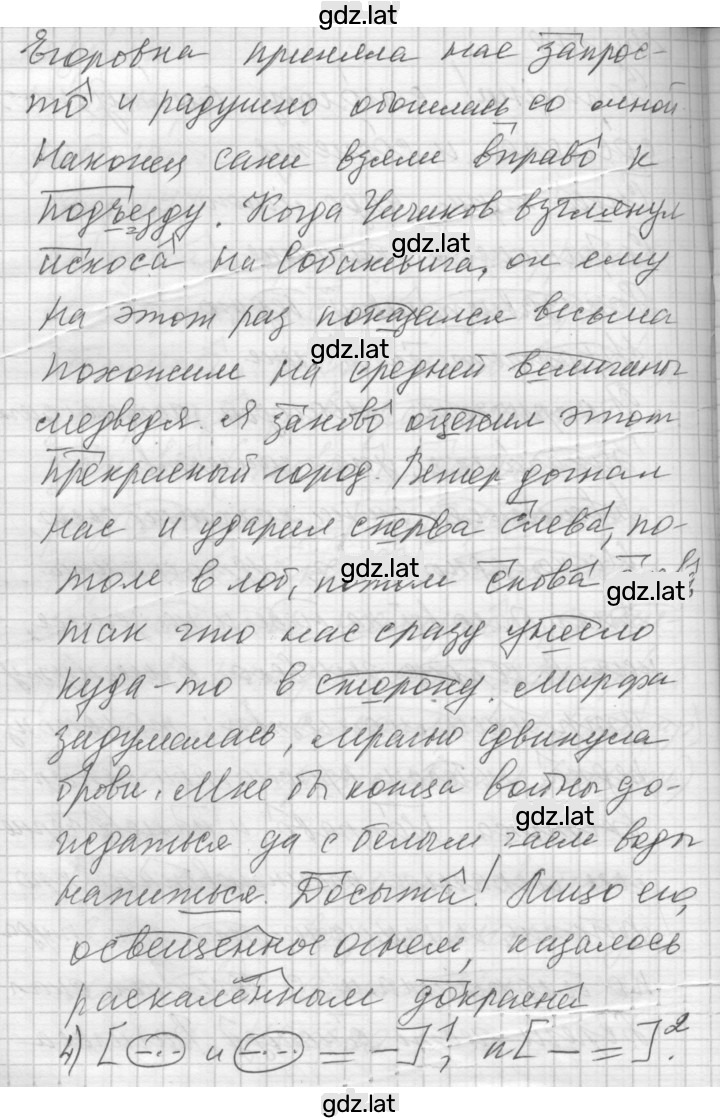 gdz.lat
Егоровна приняла нас запрос-
то и радушно обошлась со мной
Наконец сани взяли вправо к
подъезду. Когда Чичиков взглянул
gdz.lat
искоса на Собакевича, он ему
на этот раз показался весьма
gdz.lat
похожим на средней величины
медведя. Я заново оценил этот
прекрасный город. Ветер догнал
нас и ударил сперва слева, по-
том в лоб, потом снова
gdz.lat
gdz.lat
так что нас сразу унесло
куда-то в сторону. Марфа
задумалась, мрачно сдвинула
брови. Мне бы конца войны до-
gdz.lat
ждаться да с белым чаем воды
напиться. Досыта! Лицо его,
освещенное огнем, казалось
раскалённым докрасна
4) [ -.- и -.- = - ]1; п[ - = ]2.
gdz.lat